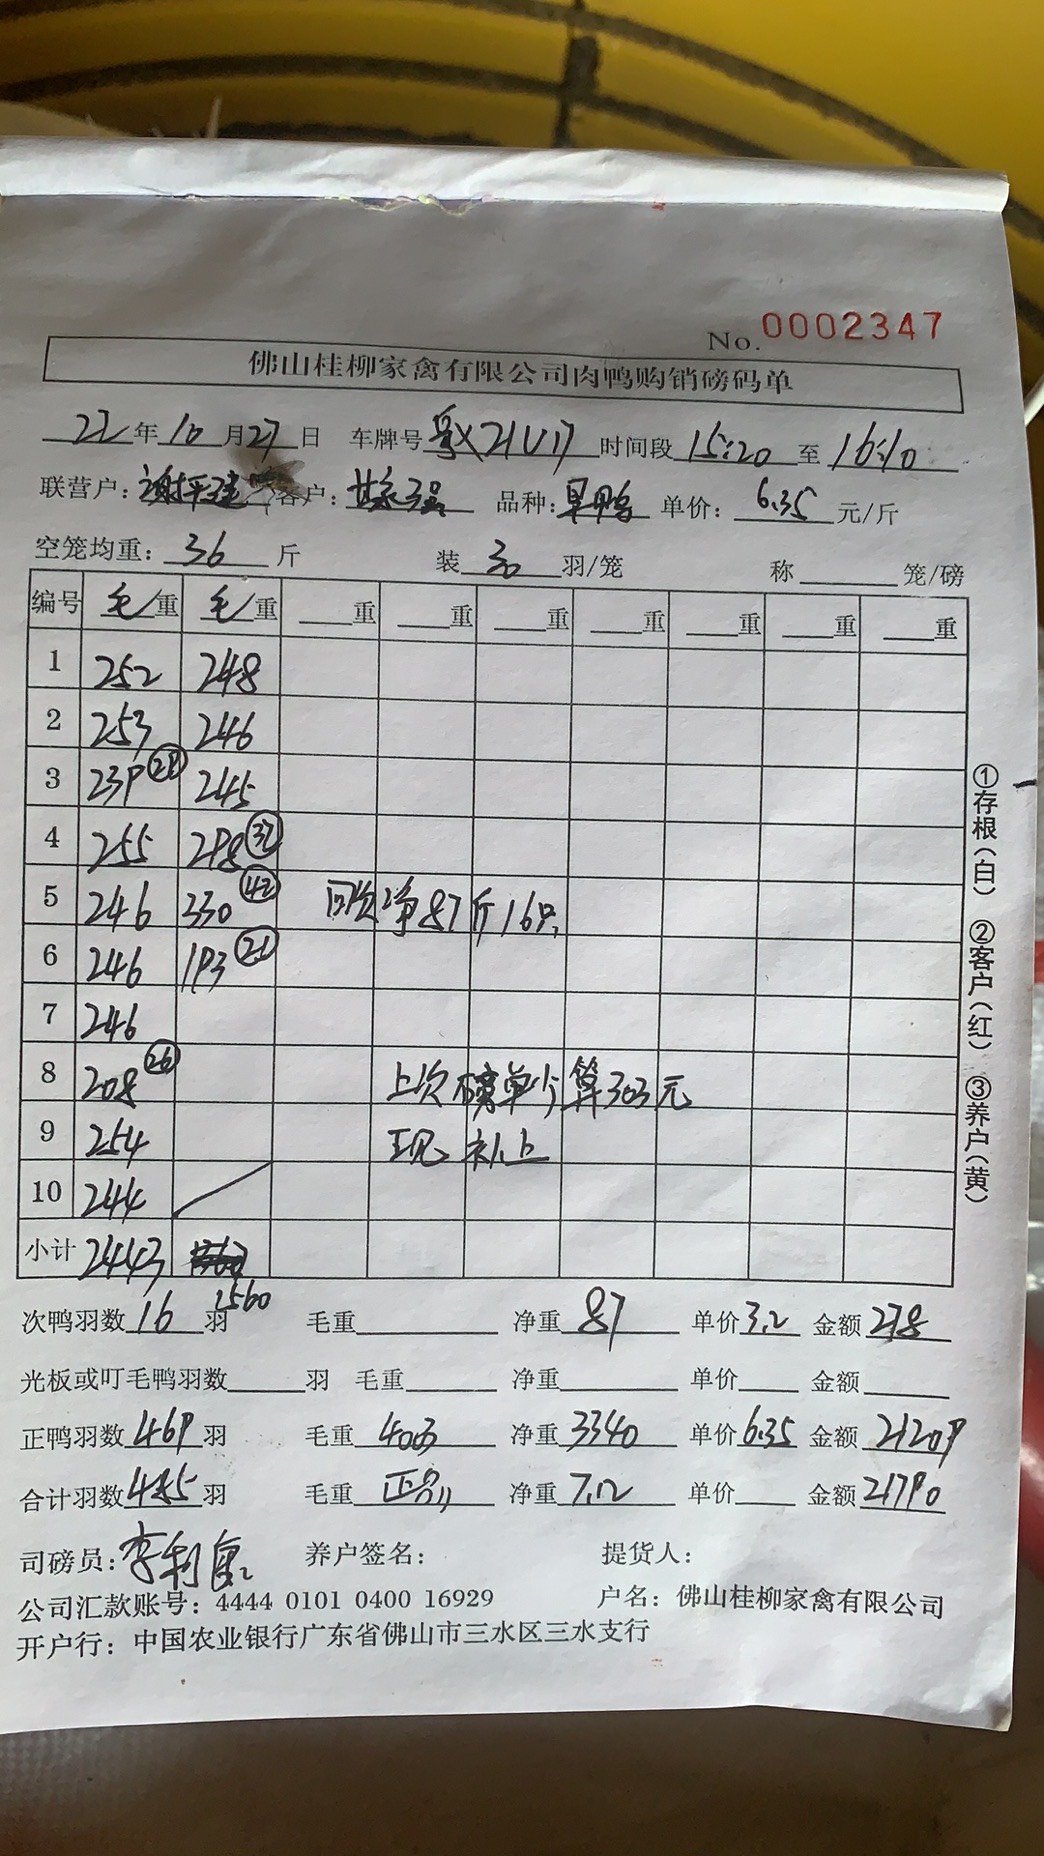 No. 0002347
佛山桂柳家禽有限公司肉鸭购销磅码单
22年10月27日 车牌号 粤X21U17 时间段 15:20 至 16:10
联营户： 客户： 品种： 单价：6.35元/斤
空笼均重：36斤 装30羽/笼 称 笼/磅
编号 毛重 毛重 重 重 重 重 重 重 重
1 252 248
2 253 246
3 239 ㉙ 245
4 255 298 ㊲
5 246 330 ㊷ 回次净87斤16只
6 246 193
7 246
8 208 ㉖ 上次磅单少算303元
9 254 现补上
10 244
小计 2443
1560
次鸭羽数16羽 毛重 净重87 单价3.2 金额278
光板或叮毛鸭羽数 羽 毛重 净重 单价 金额
正鸭羽数469羽 毛重4003 净重3340 单价6.35 金额21209
合计羽数485羽 毛重 正品 净重7.12 单价 金额21790
司磅员： 养户签名： 提货人：
公司汇款账号：4444 0101 0400 16929 户名：佛山桂柳家禽有限公司
开户行：中国农业银行广东省佛山市三水区三水支行
①存根（白） ②客户（红） ③养户（黄）